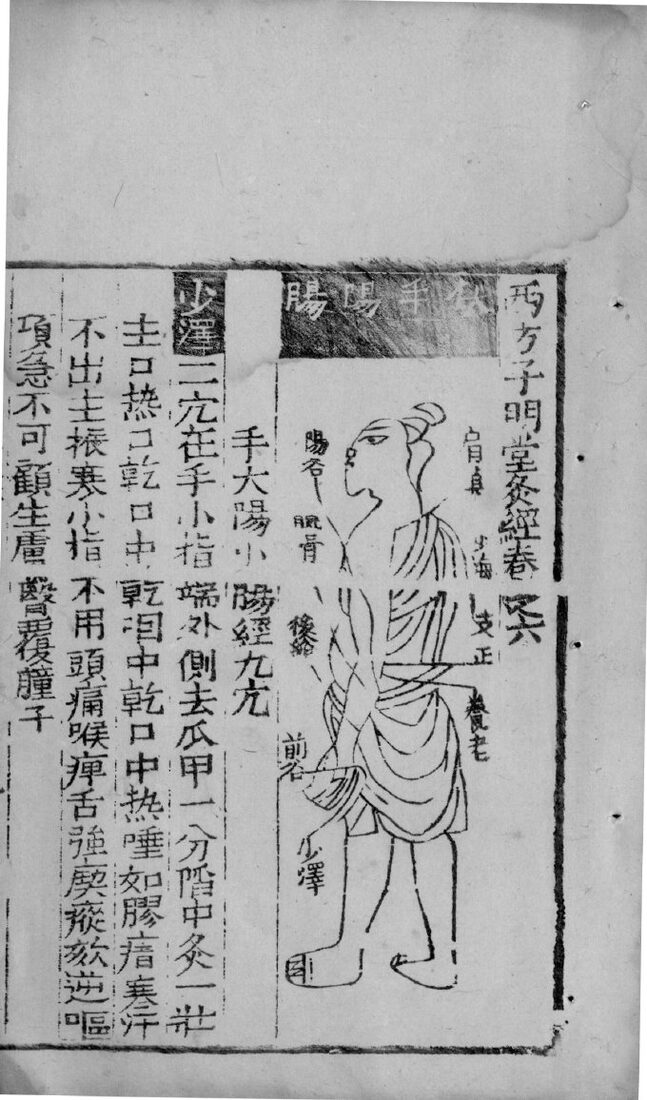 西方子明堂灸經卷之六
手陽腸
肩貞
少海
支正
養老
陽谷
腕骨
後谿
前谷
少澤
手太陽小腸經九穴
少澤二穴在手小指端外側去爪甲一分陷中灸一壯
主口热口乾口中乾泪中乾口中热唾如膠瘖塞汗
不出主振寒小指不用頭痛喉痺舌強瘈瘲欬逆嘔
項急不可顧生膚瞖覆瞳子